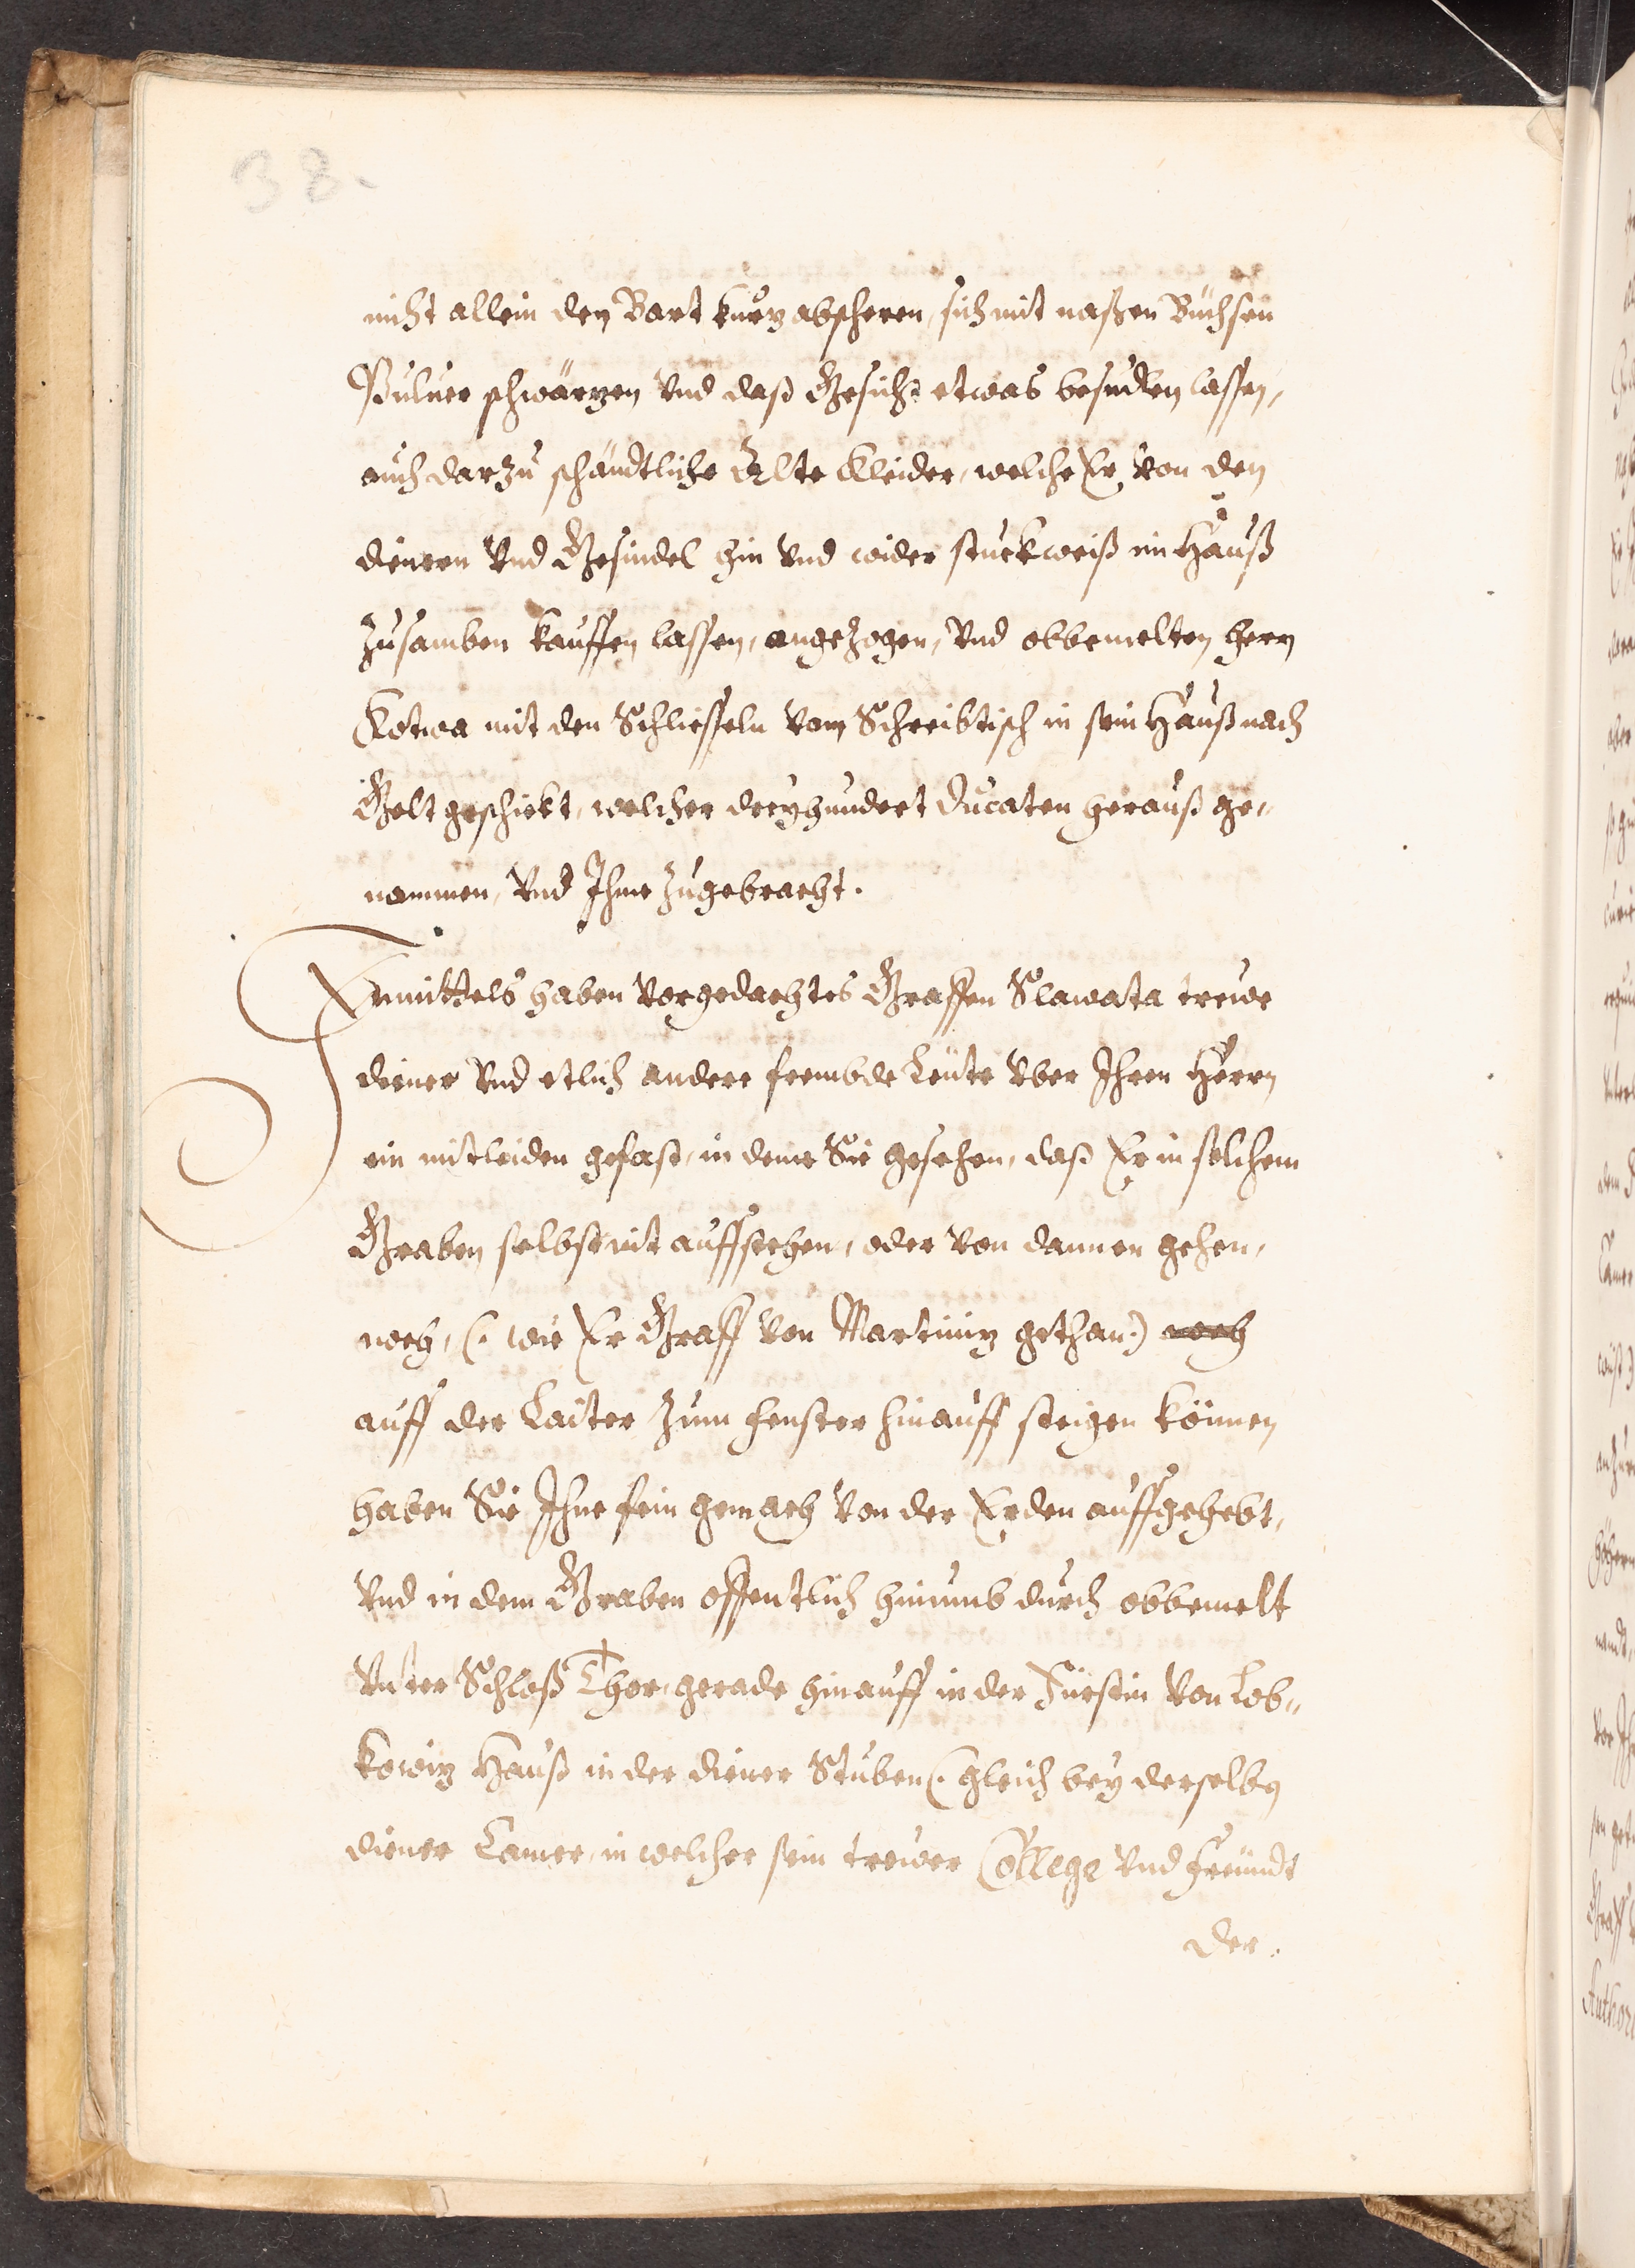 38.
nicht allein den Bart kurz abscheren, sich mit naßen Büchsen
Puluer schwärzen vnd daß Gesicht etwas besudlen lassen,
auch darzu schändtliche Alte Kleider, welche Er von den
dienern vnd Gesindel hin vnd wider stuckweiß im Hauß
zusamben kauffen lassen, angezogen, vnd obbemelten herrn
Kotwa mit den Schliesseln vom Schreibtisch in sein Hauß nach
Gelt geschickt, welcher dreyhundert Ducaten herauß ge„
nommen, vnd Ihme zugebracht.
Inmittels haben vorgedachtes Graffen Slawata trewe
diener vnd etlich andere frembde Leute vber Ihren Herrn
ein mitleiden gefast, in deme Sie gesehen, daß Er in solchem
Graben selbst nit auffstehen, oder von dannen gehen,
noch, (: wie Er Graff von Martiniz gethan:) noch
auff der Laiter zum fenster hinauff steigen können
haben Sie Ihne fein gemach von der Erden auffgehebt,
vnd in dem Graben offentlich hinumb durch obbemelt
vnter Schloß Thor, gerade hinauff in der Fürstin von Lob„
kowiz Hauß in der diener Stuben (: gleich bey derselben
diener Camer, in welcher sein trewer College vnd freundt
der.